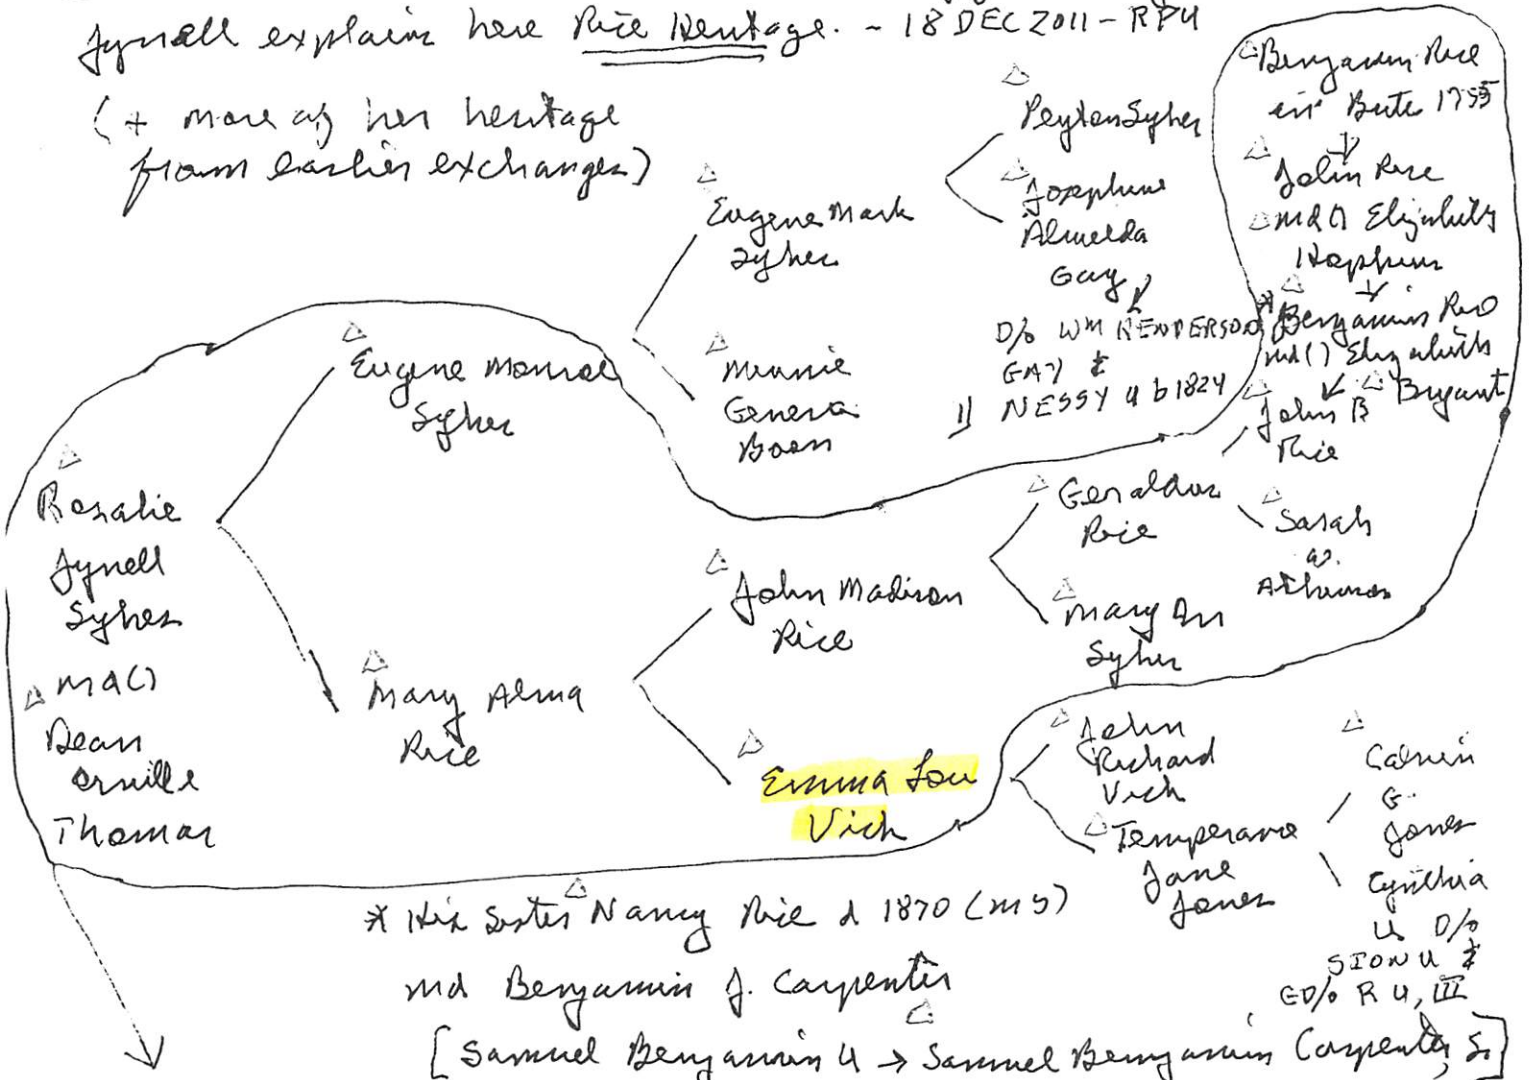 Jynell explains here Rice Heritage. - 18 DEC 2011 - RPU
(+ more of her heritage
from earlier exchanges)
Rosalie
Jynell
Sykes
md()
Dean
Orville
Thomas
Eugene Monroe
Sykes
Mary Alma
Rice
Eugene Mark
Sykes
Minnie
Geneva
Boen
John Madison
Rice
Emma Lou
Vick
Peyton Sykes
Josephine
Almeida
Gay
D/o Wm HENDERSON
GAY &
NESSY U b 1824
Geraldus
Rice
Mary Ann
Sykes
John
Richard
Vick
Temperance
Jane
Jones
Benjamin Rice
in Bute 1755
John Rice
md() Elizabeth
Hopkins
* Benjamin Rice
md() Elizabeth
Bryant
John B
Rice
Sarah
W.
Calvin
G.
Jones
Cynthia
U D/o
SION U &
GD/o R U, III
* His Sister Nancy Rice d 1870 (MS)
md Benjamin J. Carpenter
[Samuel Benjamin U → Samuel Benjamin Carpenter, Sr]